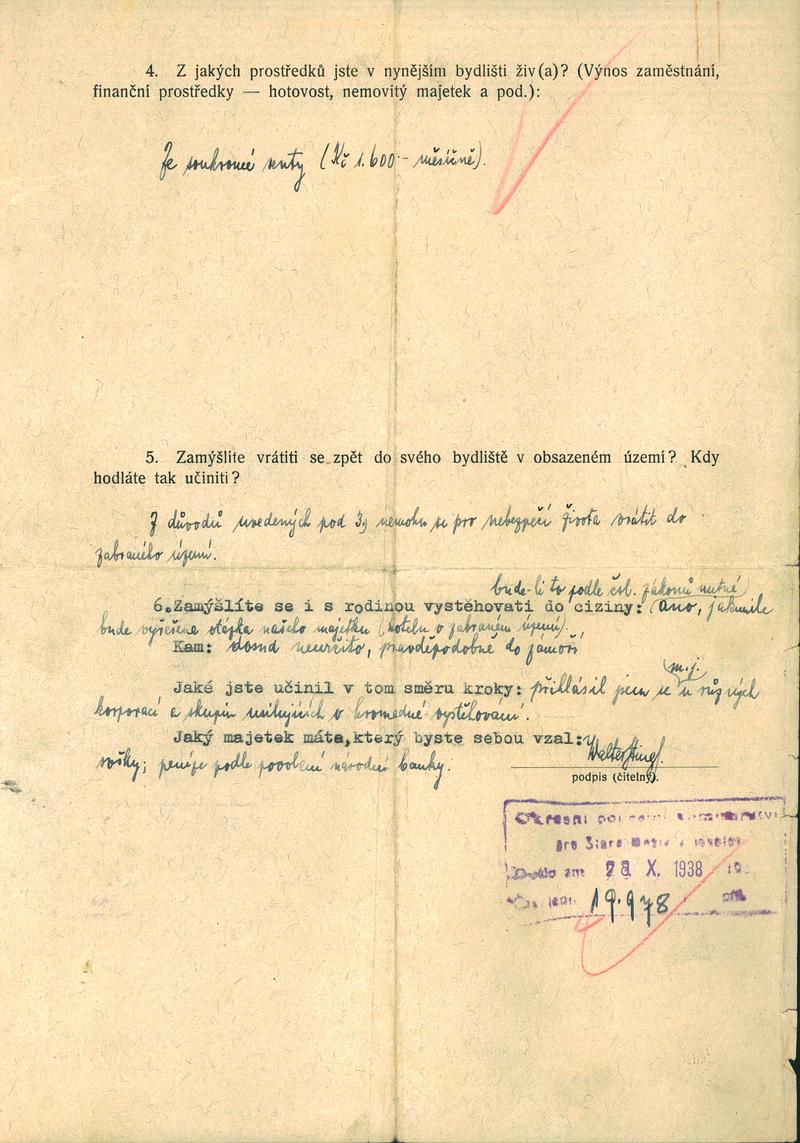 4. Z jakých prostředků jste v nynějším bydlišti živ(a)? (Výnos zaměstnání,
finanční prostředky — hotovost, nemovitý majetek a pod.):
Ze soukromé renty (Kč 1.600·- měsíčně).
5. Zamýšlíte vrátiti se zpět do svého bydliště v obsazeném území? Kdy
hodláte tak učiniti?
Z důvodů uvedených pod 3) nemohu se pro nebezpečí života vrátit do
zabraného území.
bude-li to podle čsl. zákonů nutné
6. Zamýšlíte se i s rodinou vystěhovati do ciziny: (Ano, jakmile
bude vyřešena otázka našeho majetku (hotelu v zabraném území).
Kam: dosud neurčito, pravděpodobně do zámoří
m.j.
Jaké jste učinil v tom směru kroky: přihlásil jsem se u různých
korporací a skupin usilujících o hromadné vystěhování.
Jaký majetek máte, který byste sebou vzal:
svršky; peníze podle povolení národní banky.
Walter
podpis (čitelný).
Okresní policejní
pro Staré Město
Došlo dne 28 X. 1938
19.978